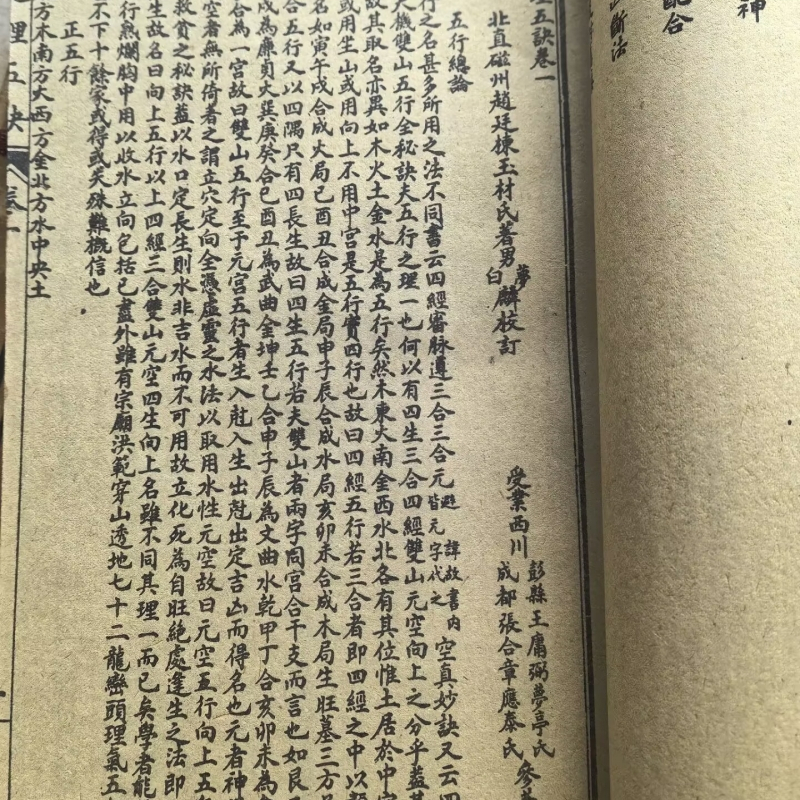 神
配合
斷法
理五訣卷一
北直磁州趙廷棟玉材氏著男夢白麟校訂
受業西川彭縣王庸弼夢亭氏
成都張合章應泰氏參
五行總論
行之名甚多所用之法不同書云四經審脉遵三合三合元避諱故書內皆元字代之空真妙訣又云四
大機雙山五行全秘訣夫五行之理一也何以有四生三合四經雙山元空向上之分乎蓋其
故其取名亦異如木火土金水是為五行矣然木東火南金西水北各有其位惟土居於中
或用生山或用向上不用中宮是五行實四行也故曰四經五行若三合者即四經之中以
名如寅午戌合成火局巳酉丑合成金局申子辰合成水局亥卯未合成木局生旺墓三方
合五行又以四隅只有四長生故曰四生五行若夫雙山者兩字同宮合干支而言也如艮
戌為廉貞火巽庚癸合巳酉丑為武曲金坤壬乙合申子辰為文曲水乾甲丁合亥卯未為
合為一宮故曰雙山五行至于元宮五行者生入尅入生出尅出定吉凶而得名也元者神
空者無所倚著之謂立穴定向全憑虛靈之水法以取用水性元空故曰元空五行向上五
救貧之秘訣蓋以水口定長生則水非吉水而不可用故立化死為自旺絕處逢生之法即
生故名曰向上五行以上四經三合雙山元空四生向上名雖不同其理一而已矣學者能
行熟爛胸中用以收水立向包括已盡外雖有宗廟洪範穿山透地七十二龍巒頭理氣五
不下十餘家或得或失殊難概信也
正五行
方木南方火西方金北方水中央土
理五訣
卷一